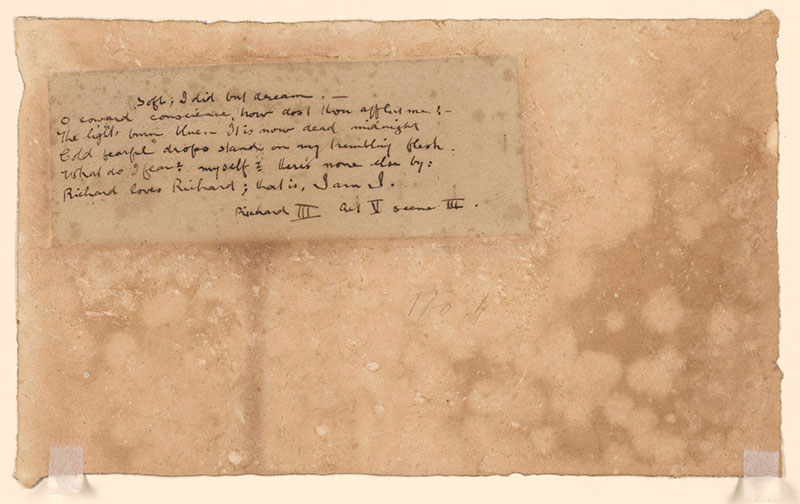 Soft; I did but dream. —
O coward conscience, how dost thou afflict me! —
The lights burn blue. – It is now dead midnight
Cold fearful drops stand on my trembling flesh.
What do I fear? myself? there's none else by:
Richard loves Richard; that is, I am I.
Richard III Act V scene III.